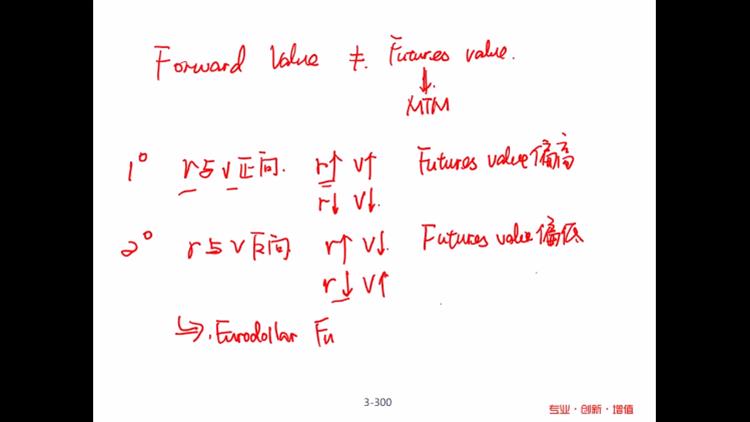 Forward Value ≠ Futures value.
↓
MTM
1° r与v正向. r↑ v↑ Futures value偏高
r↓ v↓.
2° r与v反向 r↑ v↓. Futures value偏低
r↓ v↑
↳ Eurodollar Fu
3-300
专业·创新·增值